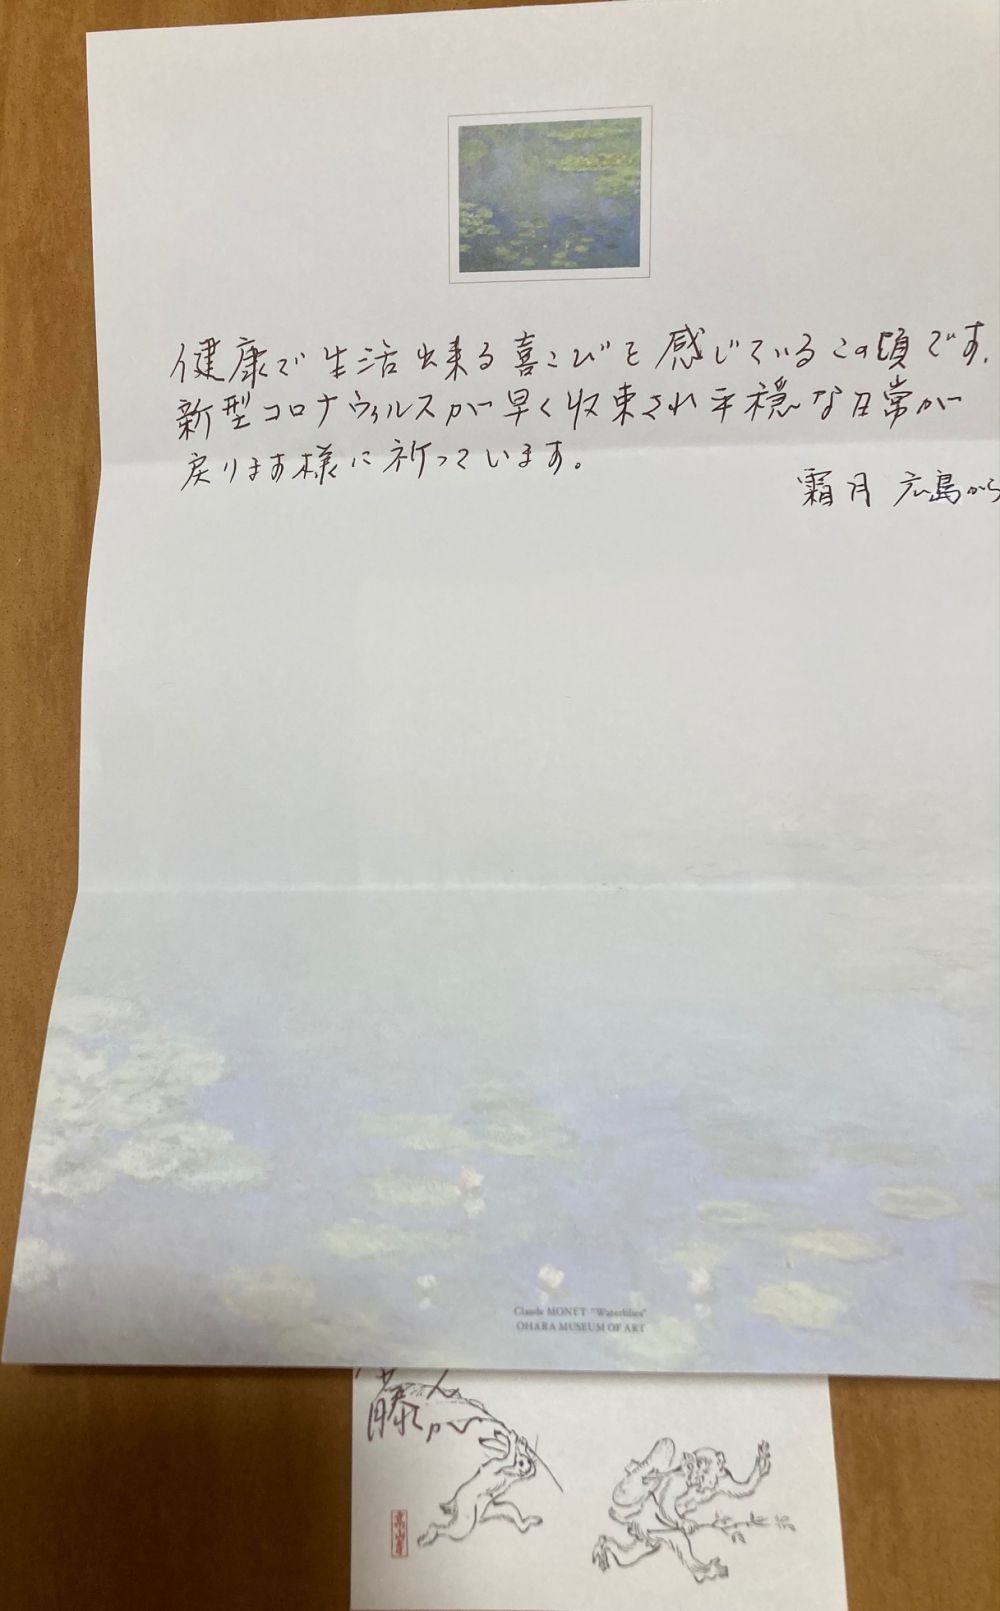 健康で生活出来る喜こびを感じているこの頃です.
新型コロナウィルスが早く収束され平穏な日常が
戻ります様に祈っています。
霜月 広島から
Claude MONET "Waterlilies"
OHARA MUSEUM OF ART
高山寺